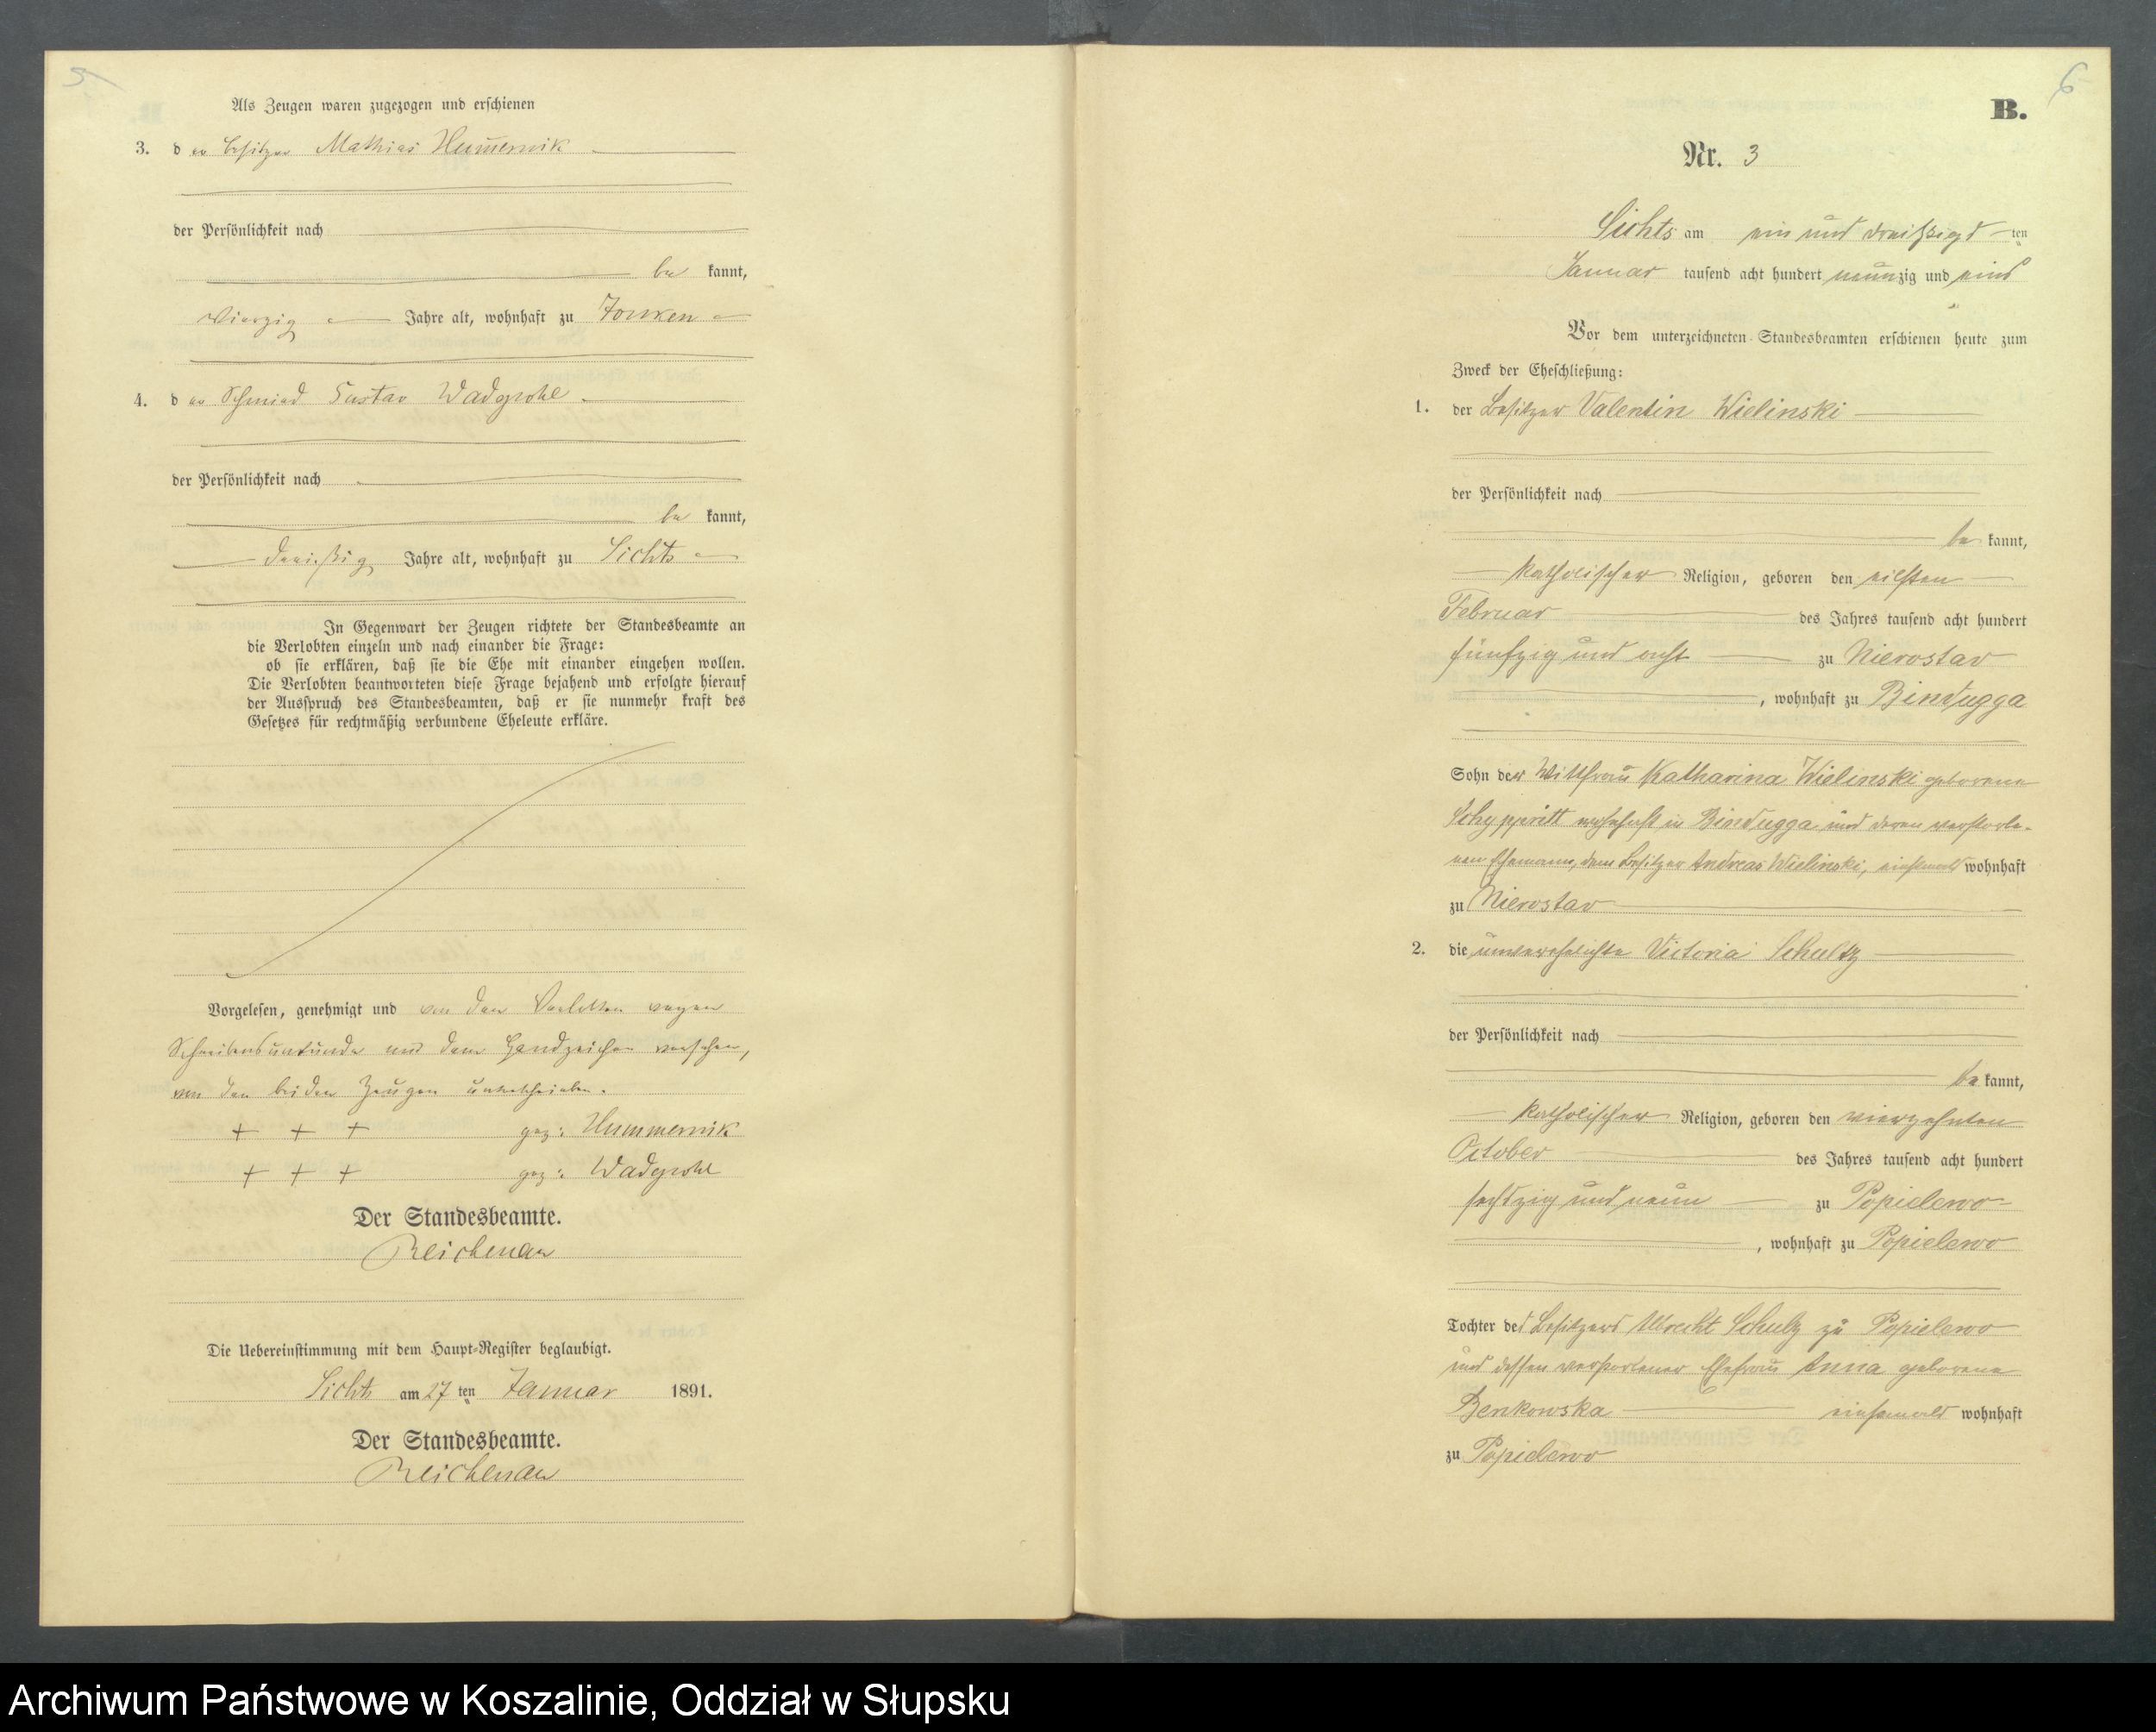 5
Als Zeugen waren zugezogen und erschienen
3. der Besitzer Mathias Hum̄ernik
der Persönlichkeit nach
be kannt,
vierzig Jahre alt, wohnhaft zu
4. der Schmied Gustav Wadepohl
der Persönlichkeit nach
be kannt,
dreißig Jahre alt, wohnhaft zu Lichts
In Gegenwart der Zeugen richtete der Standesbeamte an
die Verlobten einzeln und nach einander die Frage:
ob sie erklären, daß sie die Ehe mit einander eingehen wollen.
Die Verlobten beantworteten diese Frage bejahend und erfolgte hierauf
der Ausspruch des Standesbeamten, daß er sie nunmehr kraft des
Gesetzes für rechtmäßig verbundene Eheleute erkläre.
Vorgelesen, genehmigt und von den Verlobten wegen
Schreibensunkunde mit dem Handzeichen versehen,
von den beiden Zeugen unterschrieben.
+ + + gez: Hummernik
+ + + gez: Wadepohl
Der Standesbeamte.
Reichenau
Die Uebereinstimmung mit dem Haupt-Register beglaubigt.
Lichts am 27 ten Januar 1891.
Der Standesbeamte.
Reichenau
6
B.
Nr. 3
Lichts am ein und dreißigs ten
Januar tausend acht hundert neunzig und eins
Vor dem unterzeichneten Standesbeamten erschienen heute zum
Zweck der Eheschließung:
1. der Besitzer Valentin Wielinski
der Persönlichkeit nach
be kannt,
katholischer Religion, geboren den eilften
Februar des Jahres tausend acht hundert
fünfzig und acht zu Nierostaw
, wohnhaft zu Bindugga
Sohn der Wittfrau Katharina Wielinski geborene
wohnhaft in Bindugga und deren verstorbe-
nen Ehemann, dem Besitzer Andreas Wielinski, einstmals wohnhaft
zu Nierostaw
2. die unverehelichte Victoria Schultz
der Persönlichkeit nach
be kannt,
katholischer Religion, geboren den vierzehnten
October des Jahres tausend acht hundert
sechszig und neun zu Popielewo
, wohnhaft zu Popielewo
Tochter des Besitzers Albrecht Schulz zu Popielewo
und dessen verstorbener Ehefrau Anna geborene
Benkowska einstmals wohnhaft
zu Popielewo
Archiwum Państwowe w Koszalinie, Oddział w Słupsku